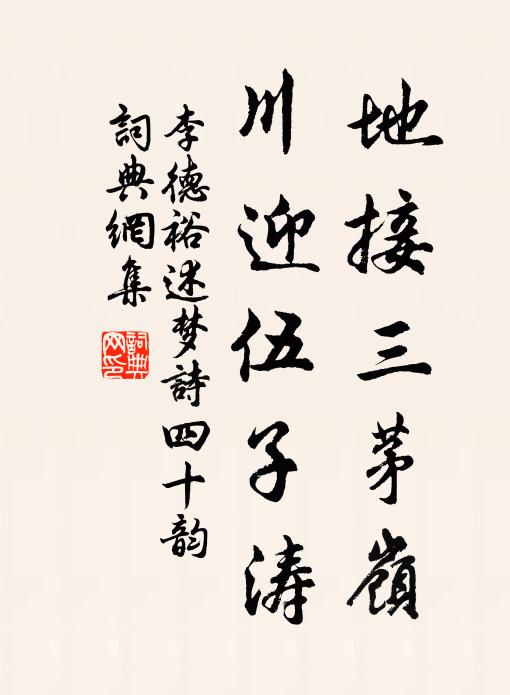 地接三茅嶺
川迎伍子涛
李德裕述梦詩四十韵
詞典網集
詞典网印